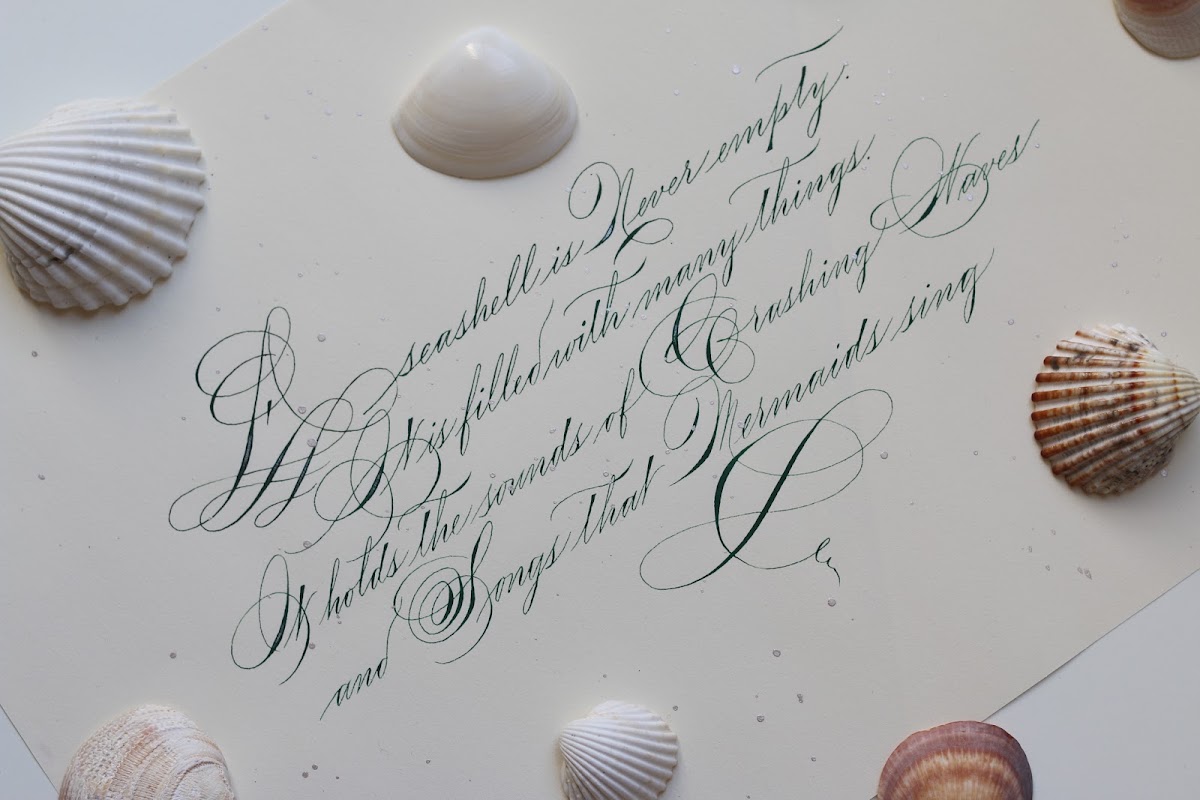 A seashell is Never empty.
It is filled with many things.
It holds the sounds of Crashing Waves
and Songs that Mermaids sing